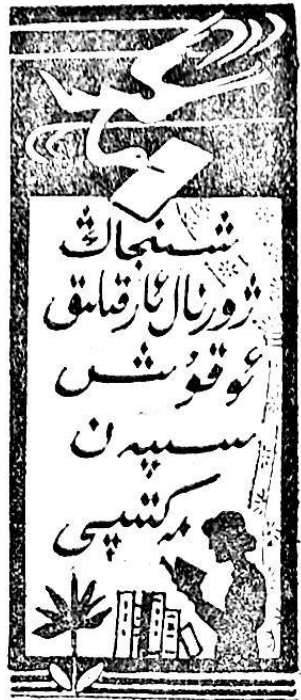 شىنجاڭ
ژورنال ئارقىلىق
ئوقۇش
سىپەن
مەكتىپى